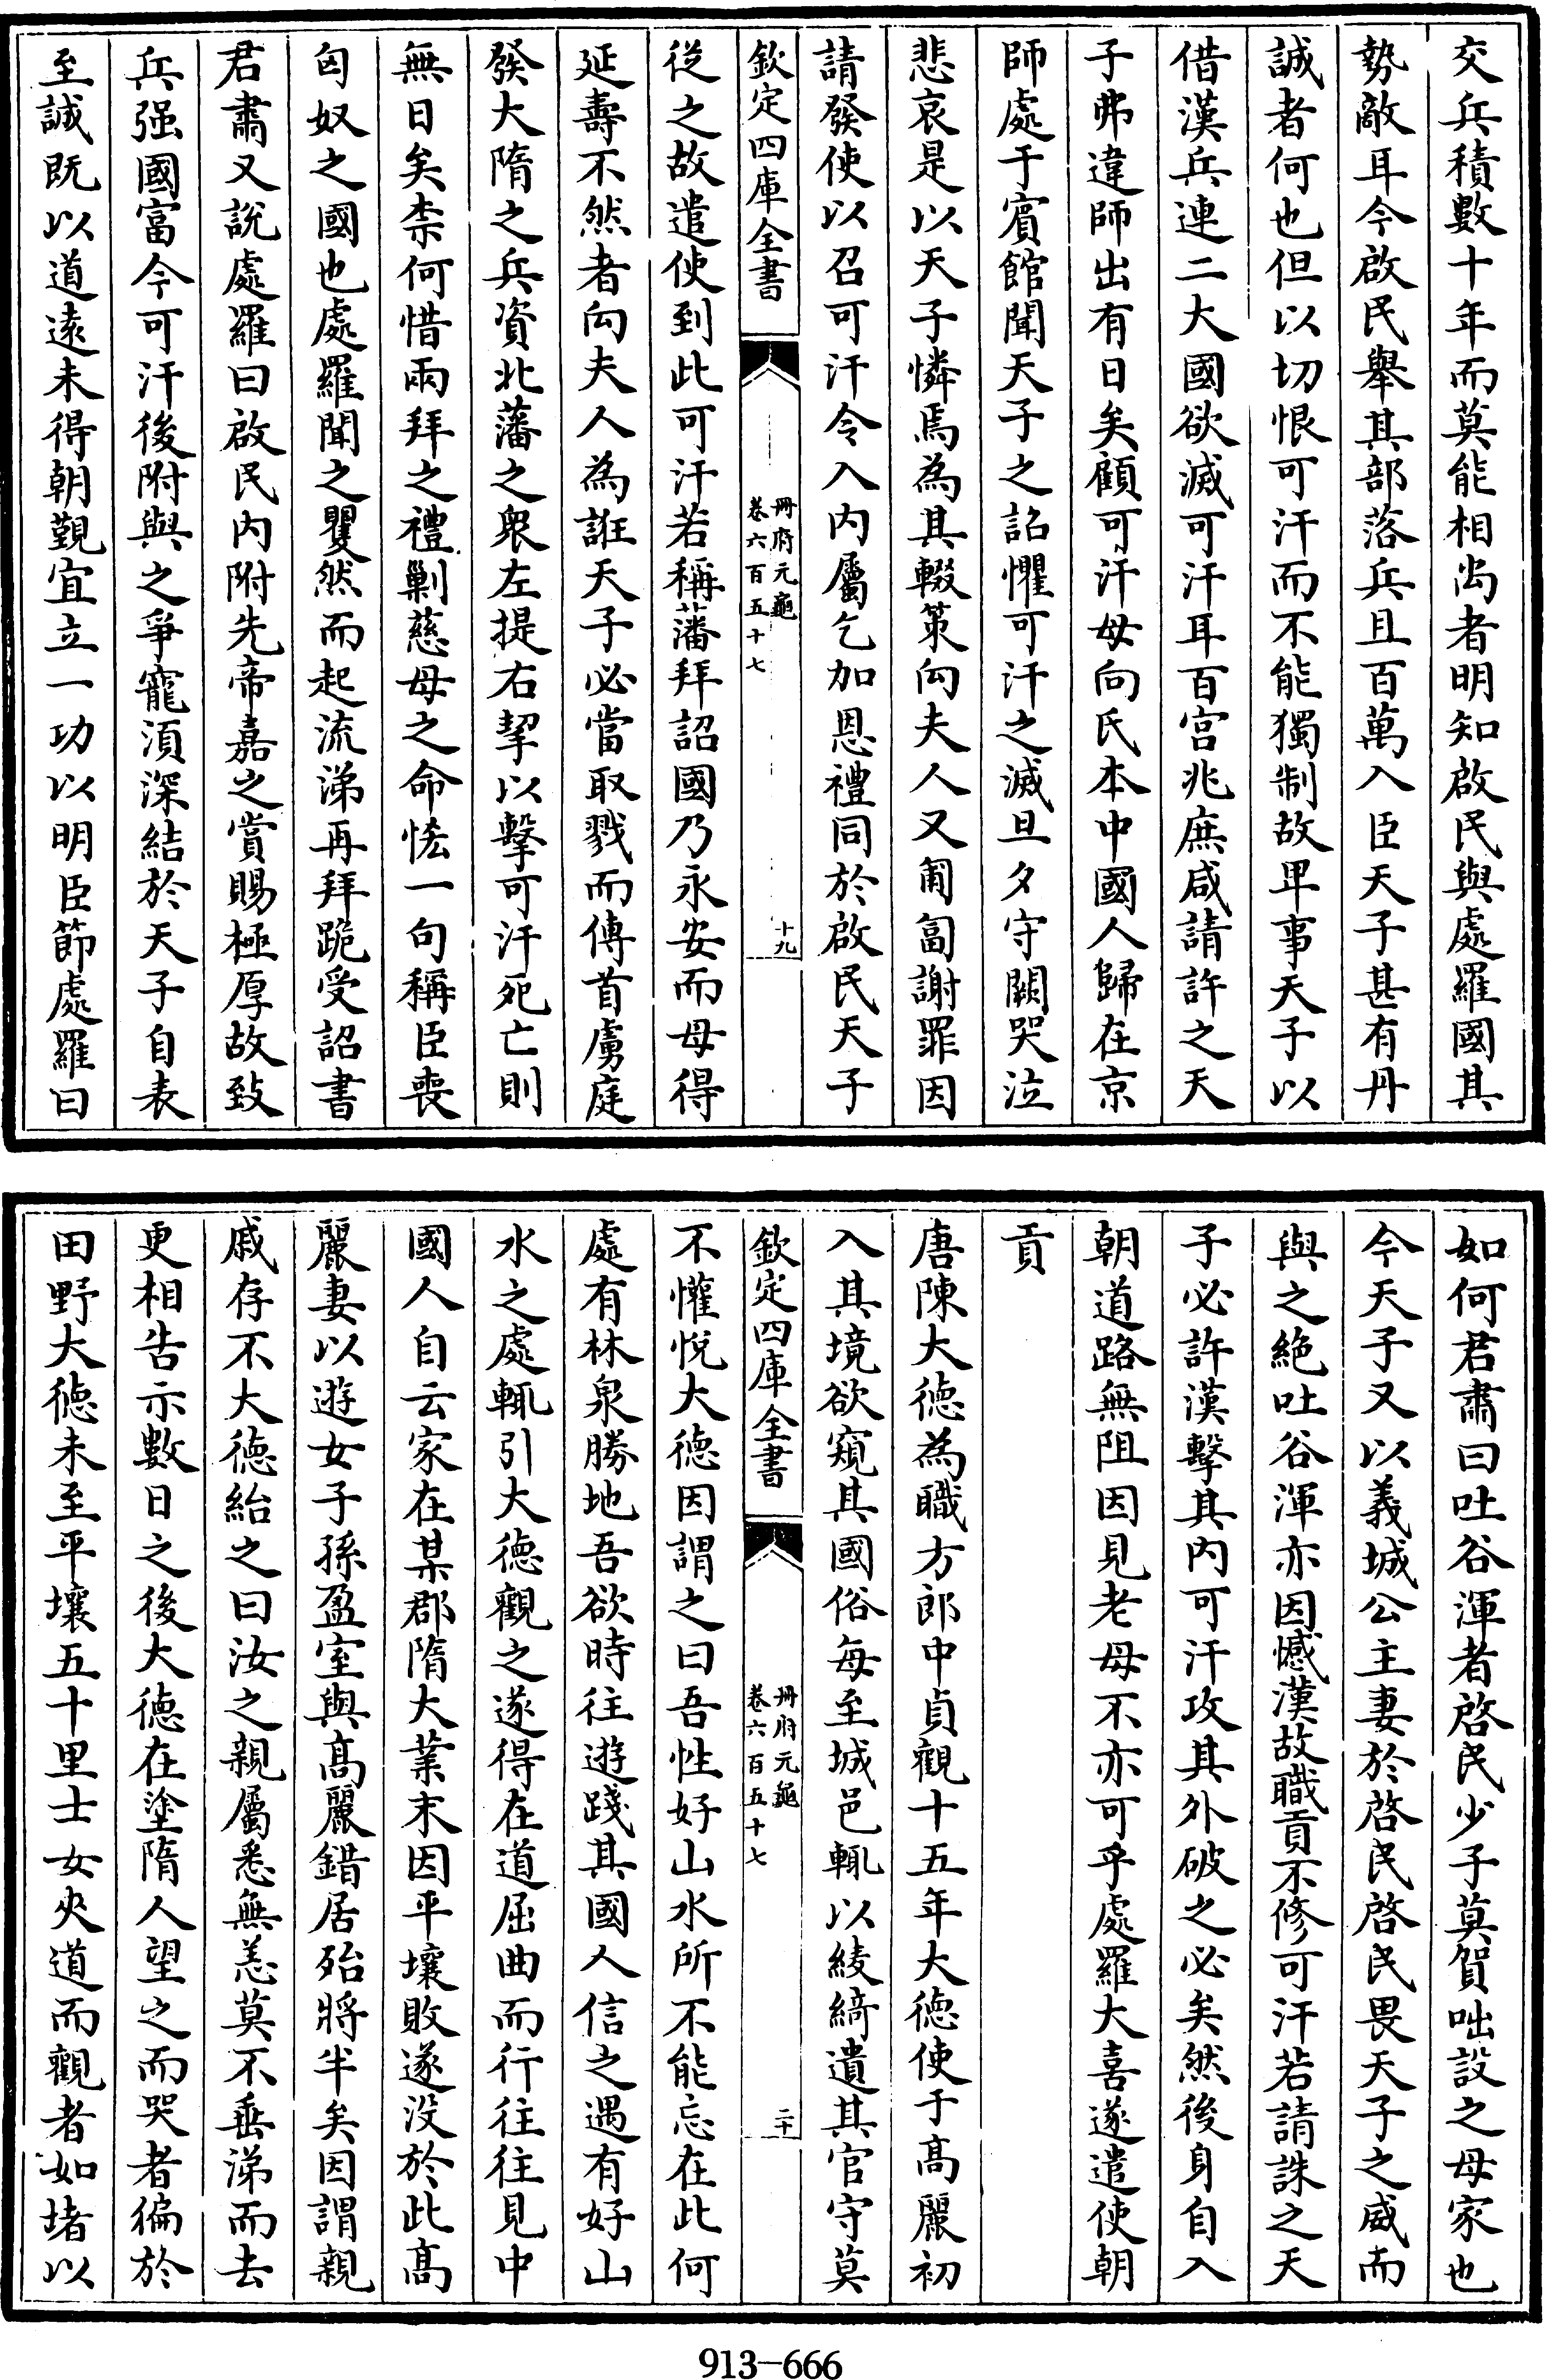 交兵積數十年而莫能相尚者明知啟民與處羅國其
勢敵耳今啟民舉其部落兵且百萬入臣天子甚有丹
誠者何也但以切恨可汗而不能獨制故卑事天子以
借漢兵連二大國欲滅可汗耳百官兆庶咸請許之天
子弗違師出有日矣顧可汗母向氏本中國人歸在京
師處于賓館聞天子之詔懼可汗之滅旦夕守闕哭泣
悲哀是以天子憐焉為其輟策向夫人又匍匐謝罪因
請發使以召可汗令入内屬乞加恩禮同於啟民天子
欽定四庫全書
冊府元龜
卷六百五十七
十九
從之故遣使到此可汗若稱藩拜詔國乃永安而母得
延壽不然者向夫人為誑天子必當取戮而傳首虜庭
發大隋之兵資北藩之衆左提右挈以擊可汗死亡則
無日矣柰何惜兩拜之禮剿慈母之命恡一句稱臣喪
匈奴之國也處羅聞之矍然而起流涕再拜跪受詔書
君肅又說處羅曰啟民内附先帝嘉之賞賜極厚故致
兵强國富今可汗後附與之爭寵湏深結於天子自表
至誠既以道逺未得朝覲宜立一功以明臣節處羅曰
如何君肅曰吐谷渾者啓民少子莫賀咄設之母家也
今天子又以義城公主妻於啓民啓民畏天子之威而
與之絶吐谷渾亦因憾漢故職貢不修可汗若請誅之天
子必許漢擊其内可汗攻其外破之必矣然後身自入
朝道路無阻因見老母不亦可乎處羅大喜遂遣使朝
貢
唐陳大徳為職方郎中貞觀十五年大徳使于髙麗初
入其境欲窺其國俗每至城邑輒以綾綺遺其官守莫
欽定四庫全書
冊府元龜
卷六百五十七
二十
不懽悅大徳因謂之曰吾性好山水所不能忘在此何
處有林泉勝地吾欲時往遊踐其國人信之遇有好山
水之處輒引大徳觀之遂得在道屈曲而行往往見中
國人自云家在某郡隋大業末因平壤敗遂没於此髙
麗妻以遊女子孫盈室與髙麗錯居殆將半矣因謂親
戚存不大徳紿之曰汝之親屬悉無恙莫不垂涕而去
更相告示數日之後大徳在塗隋人望之而哭者徧於
田野大徳未至平壤五十里士女夾道而觀者如堵以
913-666